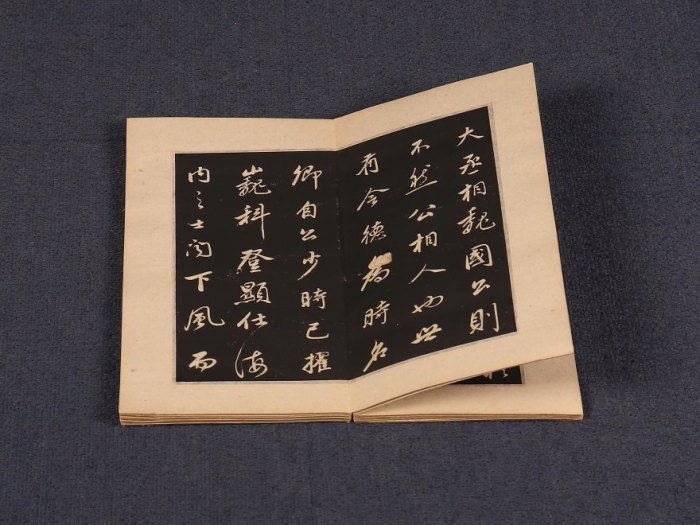 大丞相魏國公則
不然公相人也世
有令德為時名
卿自公少時已擢
巍科登顯仕海
內之士聞下風而